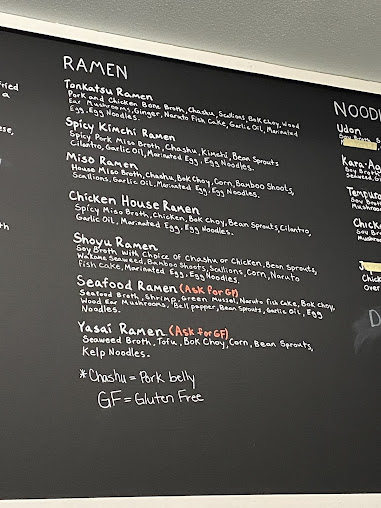 RAMEN
Tonkatsu Ramen
Pork and Chicken Bone Broth, Chashu, Scallions, Bok Choy, Wood
Ear Mushrooms, Ginger, Naruto Fish Cake, Garlic Oil, Marinated
Egg, Egg Noodles.
Spicy Kimchi Ramen
Spicy Pork Miso Broth, Chashu, Kimchi, Bean Sprouts
Cilantro, Garlic Oil, Marinated Egg, Egg Noodles.
Miso Ramen
House Miso Broth, Chashu, Bok Choy, Corn, Bamboo Shoots,
Scallions, Garlic Oil, Marinated Egg, Egg Noodles.
Chicken House Ramen
Spicy Miso Broth, Chicken, Bok Choy, Bean Sprouts, Cilantro,
Garlic Oil, Marinated Egg, Egg Noodles.
Shoyu Ramen
Soy Broth with Choice of Chashu or Chicken, Bean Sprouts,
Wakame Seaweed, Bamboo Shoots, Scallions, Corn, Naruto
Fish Cake, Marinated Egg, Egg Noodles.
Seafood Ramen (Ask for GF)
Seafood Broth, Shrimp, Green Mussel, Naruto Fish Cake, Bok Choy,
Wood Ear Mushrooms, Bell pepper, Bean Sprouts, Garlic Oil, Egg
Noodles.
Yasai Ramen (Ask for GF)
Seaweed Broth, Tofu, Bok Choy, Corn, Bean Sprouts,
Kelp Noodles.
*Chashu = Pork belly
GF = Gluten Free
NOODL
Udon
Soy Broth
Kara-Aa
Soy Broth
Seaweed
Tempur
Soy Brot
Mushroom
Chick
Soy Br
Mush
Chick
Over